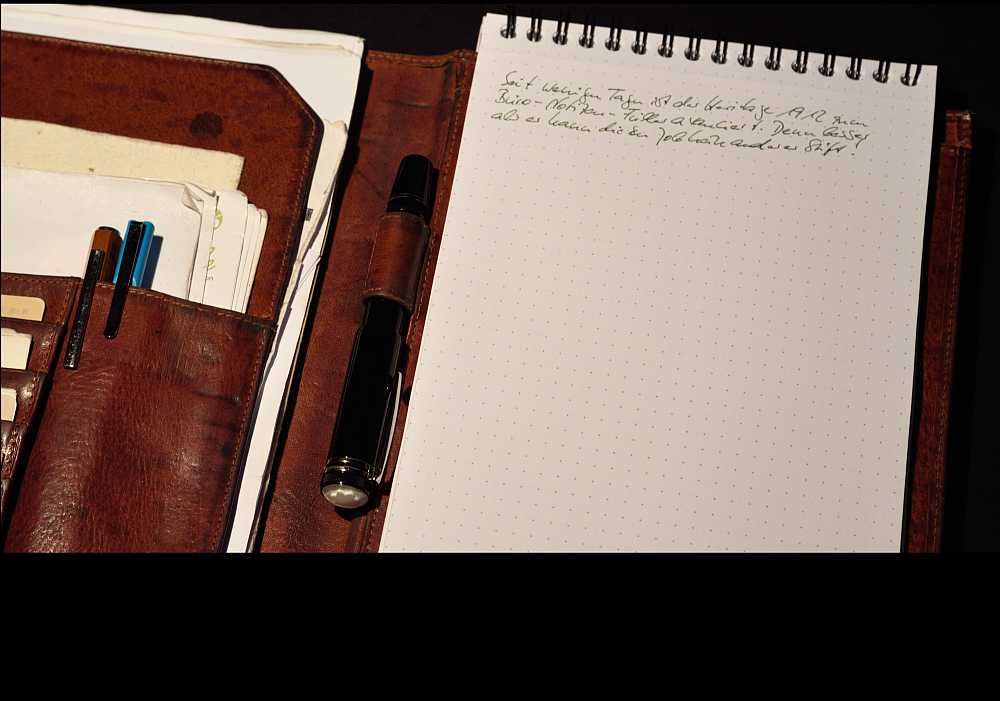 Seit wenigen Tagen ist der Heritage 1912 zum
Büro-Notizen-Füller avanciert. Denn besser
als er kann diesen Job kein anderer Stift.